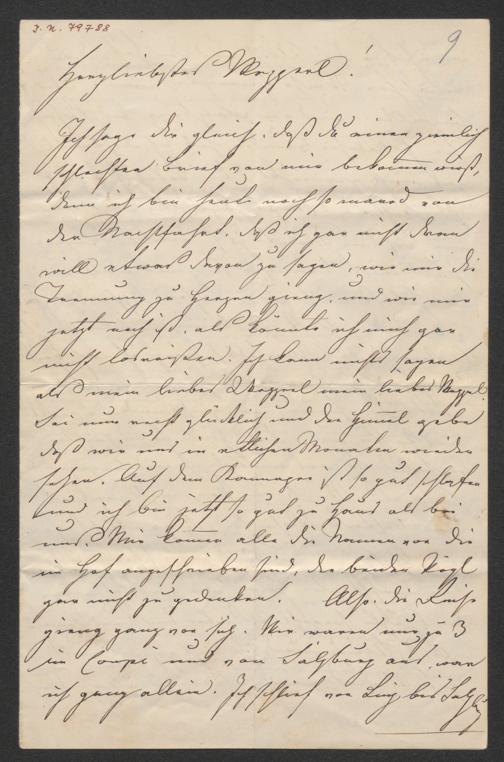 I. N. 79788
9
Herzliebstes Muggerl!
Ich sage dir gleich, daß du einen ziemlich
schlechten Brief von mir bekommen wirst,
denn ich bin heute noch so marod von
der Nachtfahrt, daß ich gar nicht daran
will etwas davon zu sagen, wie mir die
Trennung zu Herzen gieng, und wie mir
jetzt noch ist, als könnte ich mich gar
nicht losreißen. Ich kann nichts sagen
als mein liebes Muggerl mein liebes
Sei nur recht glücklich und der Himmel gebe
daß wir uns in etlichen Monaten wieder
sehen. Auf dem Kanapee ist so gut schlafen
und ich bin jetzt so gut zu Haus als bei
uns. Mir kommen alle die Namen vor die
im Hof angeschrieben sind, der beiden Vögl
gar nicht zu gedenken. Also. die Reise
gieng ganz vor sich. Wir waren nur zu 3
im Coupé und von Salzburg aus, war
ich ganz allein. Ich schlief von Linz bis Salzburg